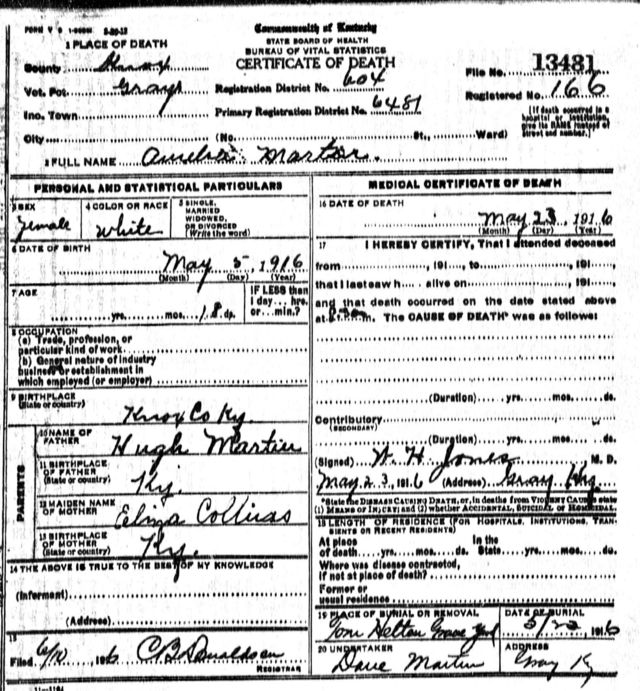 FORM V S 1-
Commonwealth of Kentucky
STATE BOARD OF HEALTH
BUREAU OF VITAL STATISTICS
CERTIFICATE OF DEATH
1 PLACE OF DEATH
County Knox
Vot. Pct Grays
Inc. Town
City (No. St., Ward)
Registration District No. 604
Primary Registration District No. 6481
File No. 13481
Registered No. 166
[If death occurred in a
hospital or institution,
give its NAME instead of
street and number.]
2 FULL NAME Martin
PERSONAL AND STATISTICAL PARTICULARS
3 SEX
Female
4 COLOR OR RACE
White
5 SINGLE,
MARRIED
WIDOWED,
OR DIVORCED
(Write the word)
6 DATE OF BIRTH
May 5, 1916
(Month) (Day) (Year)
7 AGE
yrs. mos. 18 ds.
IF LESS than
1 day... hrs.
or... min.?
8 OCCUPATION
(a) Trade, profession, or
particular kind of work
(b) General nature of industry
business or establishment in
which employed (or employer)
9 BIRTHPLACE
(State or country)
Knox Co Ky.
PARENTS
10 NAME OF
FATHER
Hugh Martin
11 BIRTHPLACE
OF FATHER
(State or country)
Ky.
12 MAIDEN NAME
OF MOTHER
Collins
13 BIRTHPLACE
OF MOTHER
(State or country)
Ky.
14 THE ABOVE IS TRUE TO THE BEST OF MY KNOWLEDGE
(Informant)
(Address)
15
Filed 6/10 1916 C B Donaldson
REGISTRAR
MEDICAL CERTIFICATE OF DEATH
16 DATE OF DEATH
May 23, 1916
(Month) (Day) (Year)
17 I HEREBY CERTIFY, That I attended deceased
from 191 to 191
that I last saw h alive on 191
and that death occurred on the date stated above
at m. The CAUSE OF DEATH* was as follows:
(Duration) yrs. mos. ds.
Contributory
(SECONDARY)
(Duration) yrs. mos. ds.
(Signed) W. H. Jones M. D.
May 23, 1916 (Address) Gray Ky
*State the DISEASE CAUSING DEATH, or, in deaths from VIOLENT CAUSES state
(1) MEANS OF INJURY; and (2) whether ACCIDENTAL, SUICIDAL or HOMICIDAL.
18 LENGTH OF RESIDENCE (FOR HOSPITALS, INSTITUTIONS, TRAN-
SIENTS OR RECENT RESIDENTS)
At place In the
of death yrs. mos. ds. State yrs. mos. ds.
Where was disease contracted,
if not at place of death?
Former or
usual residence
19 PLACE OF BURIAL OR REMOVAL
Tom Helton Grave Yard
DATE OF BURIAL
5/ 1916
20 UNDERTAKER
Dave Martin
ADDRESS
Gray Ky